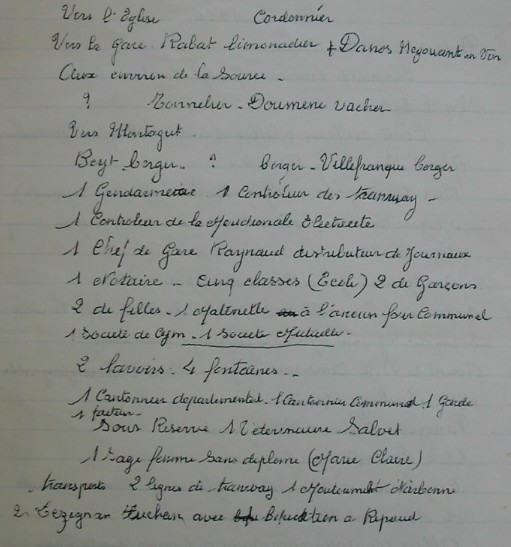 Vers l'Eglise Cordonnier
Vers la gare. Rabat limonadier + Danos Negociant en Vin
Aux environ de la Source -
? Tonnelier - Doumenc vacher
Vers Montagut -
Beyt berger - ? berger - Villefranque berger
1 Gendarmerie 1 Controleur des tramway -
1 Controleur de la Meridionale Electricite
1 Chef de Gare Raynaud distributeur de Journaux
1 Notaire - Cinq classes (Ecole) 2 de Garçons
2 de filles - 1 Maternelle à l'ancien four Communal
1 Societe de Gym - 1 Societe Mutuelle -
2 lavoirs - 4 fontaines - -
1 Cantonnier departemental - 1 Cantonnier Communal, 1 Garde
1 facteur -
Sous Reserve 1 Veterinaire Salvet
1 Sage femme sans diplome (Marie Claire)
transports 2 lignes de tramway 1 Narbonne
2 - Lezignan avec bifurcation a Ripaud